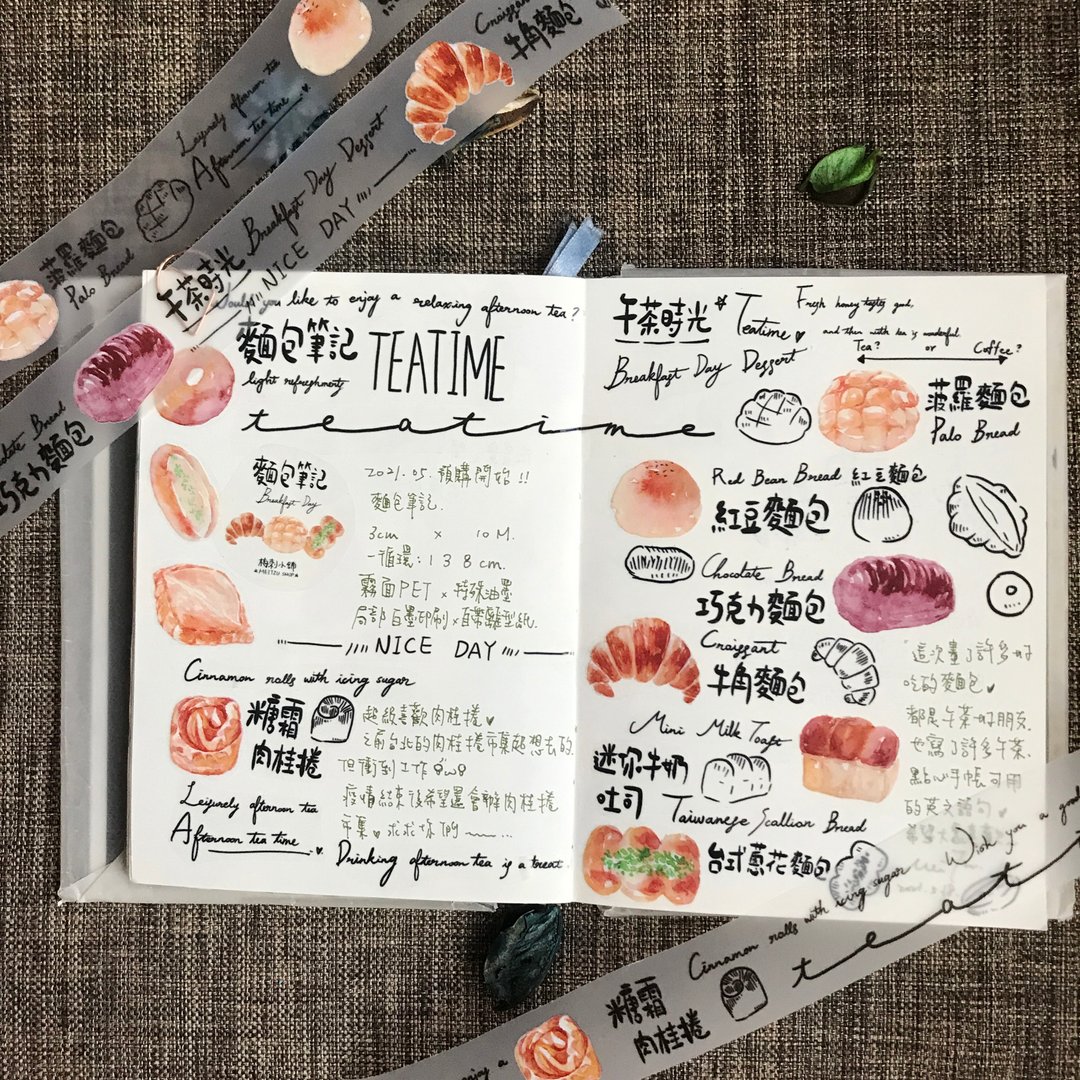 Croissant
牛角麵包
Leisurely afternoon tea
Afternoon tea time
Breakfast Day Dessert
NICE DAY
菠蘿麵包
Palo Bread
午茶時光
Chocolate Bread
巧克力麵包
Would you like to enjoy a relaxing afternoon tea?
麵包筆記
TEATIME
light refreshments
teatime
麵包筆記
Breakfast Day
梅子小舖
MEITZU SHOP
2021.05.預購開始!!
麵包筆記.
3cm x 10M.
一循環:138cm.
霧面PET x 特殊油墨
局部白墨印刷x首帶離型紙.
NICE DAY
Cinnamon rolls with icing sugar
糖霜
肉桂捲
超級喜歡肉桂捲
之前台北的肉桂捲市集超想去的
但衝到工作
疫情結束後希望還會辦肉桂捲
市集 求求你們
Leisurely afternoon tea
Afternoon tea time
Drinking afternoon tea is a treat
午茶時光
Teatime
Fresh honey tastes good,
and then with tea is wonderful
Tea? or Coffee?
Breakfast Day Dessert
菠蘿麵包
Palo Bread
Red Bean Bread 紅豆麵包
紅豆麵包
Chocolate Bread
巧克力麵包
Croissant
牛角麵包
這次畫了許多好
吃的麵包
都是午茶好朋友
也寫了許多午茶.
點心手帳可用
的英文語句
Mini Milk Toast
迷你牛奶
吐司
Taiwanese Scallion Bread
台式蔥花麵包
Wish you a good
Cinnamon rolls with icing sugar
teat
糖霜
肉桂捲
enjoy a